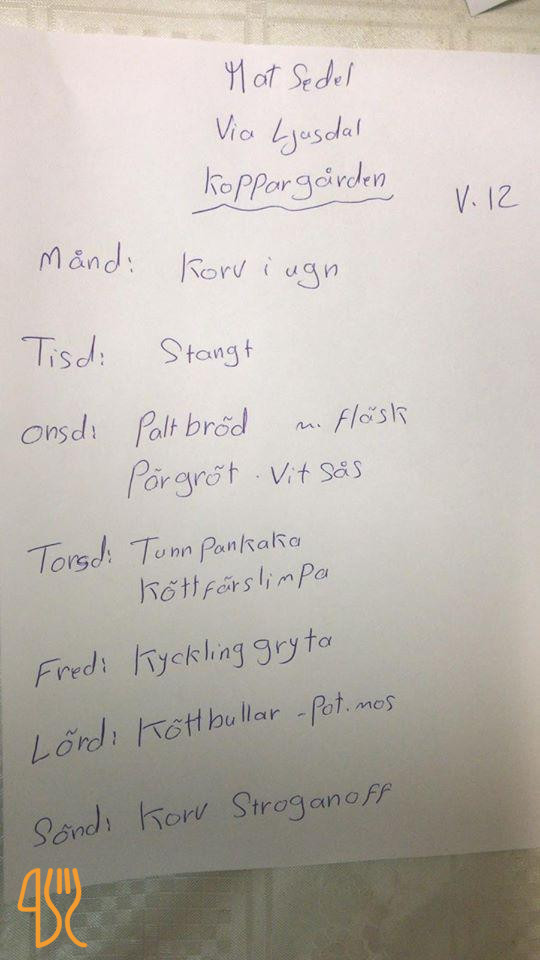 Mat Sedel
Via Ljusdal
Koppargården
V. 12
Månd: Korv i ugn
Tisd: Stangt
Onsd: Palt bröd m. fläsk
Pärgröt . Vit sås
Torsd: Tunn Pankaka
Köttfärslimpa
Fred: Kyckling gryta
Lörd: Köttbullar - Pot. mos
Sönd: Korv Stroganoff